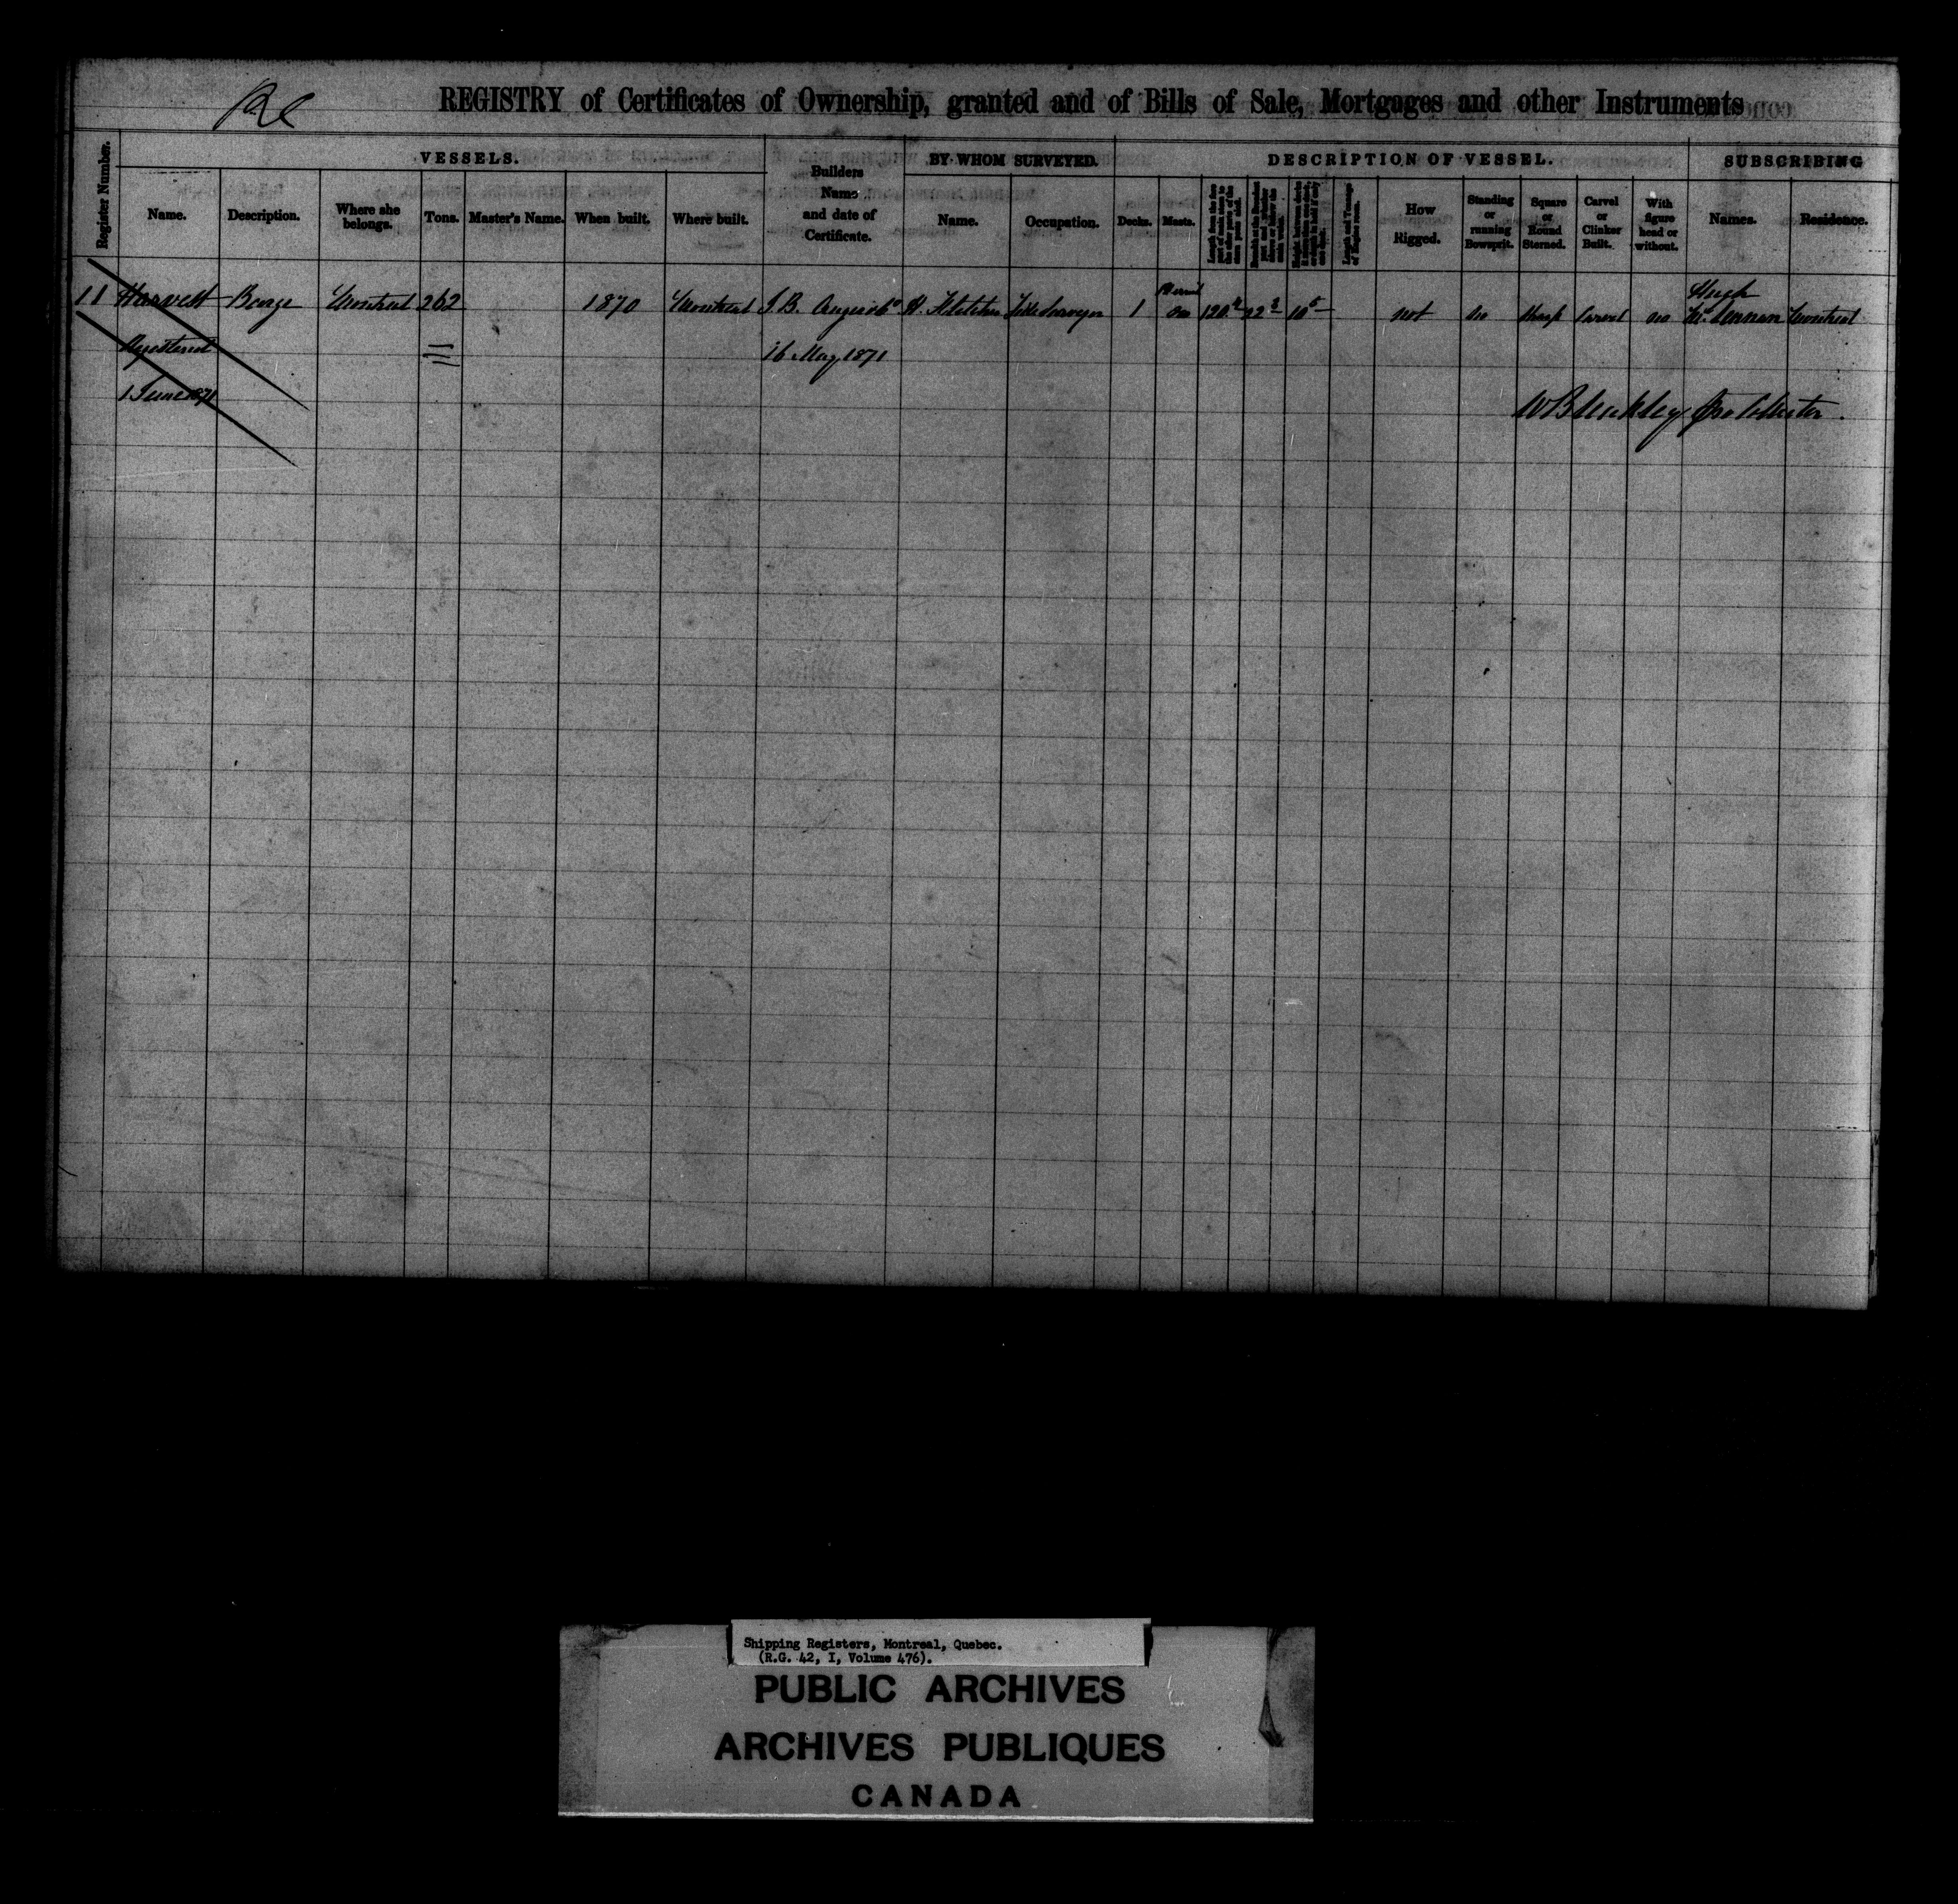 REGISTRY of Certificates of Ownership, granted and of Bills of Sale, Mortgages and other Instruments
Register Number.
VESSELS.
Name.
Description.
Where she belongs.
Tons.
Master's Name.
When built.
Where built.
Builders Name and date of Certificate.
BY WHOM SURVEYED.
Name.
Occupation.
DESCRIPTION OF VESSEL.
Decks.
Masts.
How Rigged.
Standing or running Bowsprit.
Square or Round Sterned.
Carvel or Clinker Built.
With figure head or without.
SUBSCRIBING
Names.
Residence.
11 Harvest Barge Montreal 262 1870 Montreal J.B. H. Fletcher 1 not no Sharp Carvel no Hugh McLennan Montreal
Registered 16 May 1871
1 June 1871
W Bleakley
Shipping Registers, Montreal, Quebec.
(R.G. 42, I, Volume 476).
PUBLIC ARCHIVES
ARCHIVES PUBLIQUES
CANADA